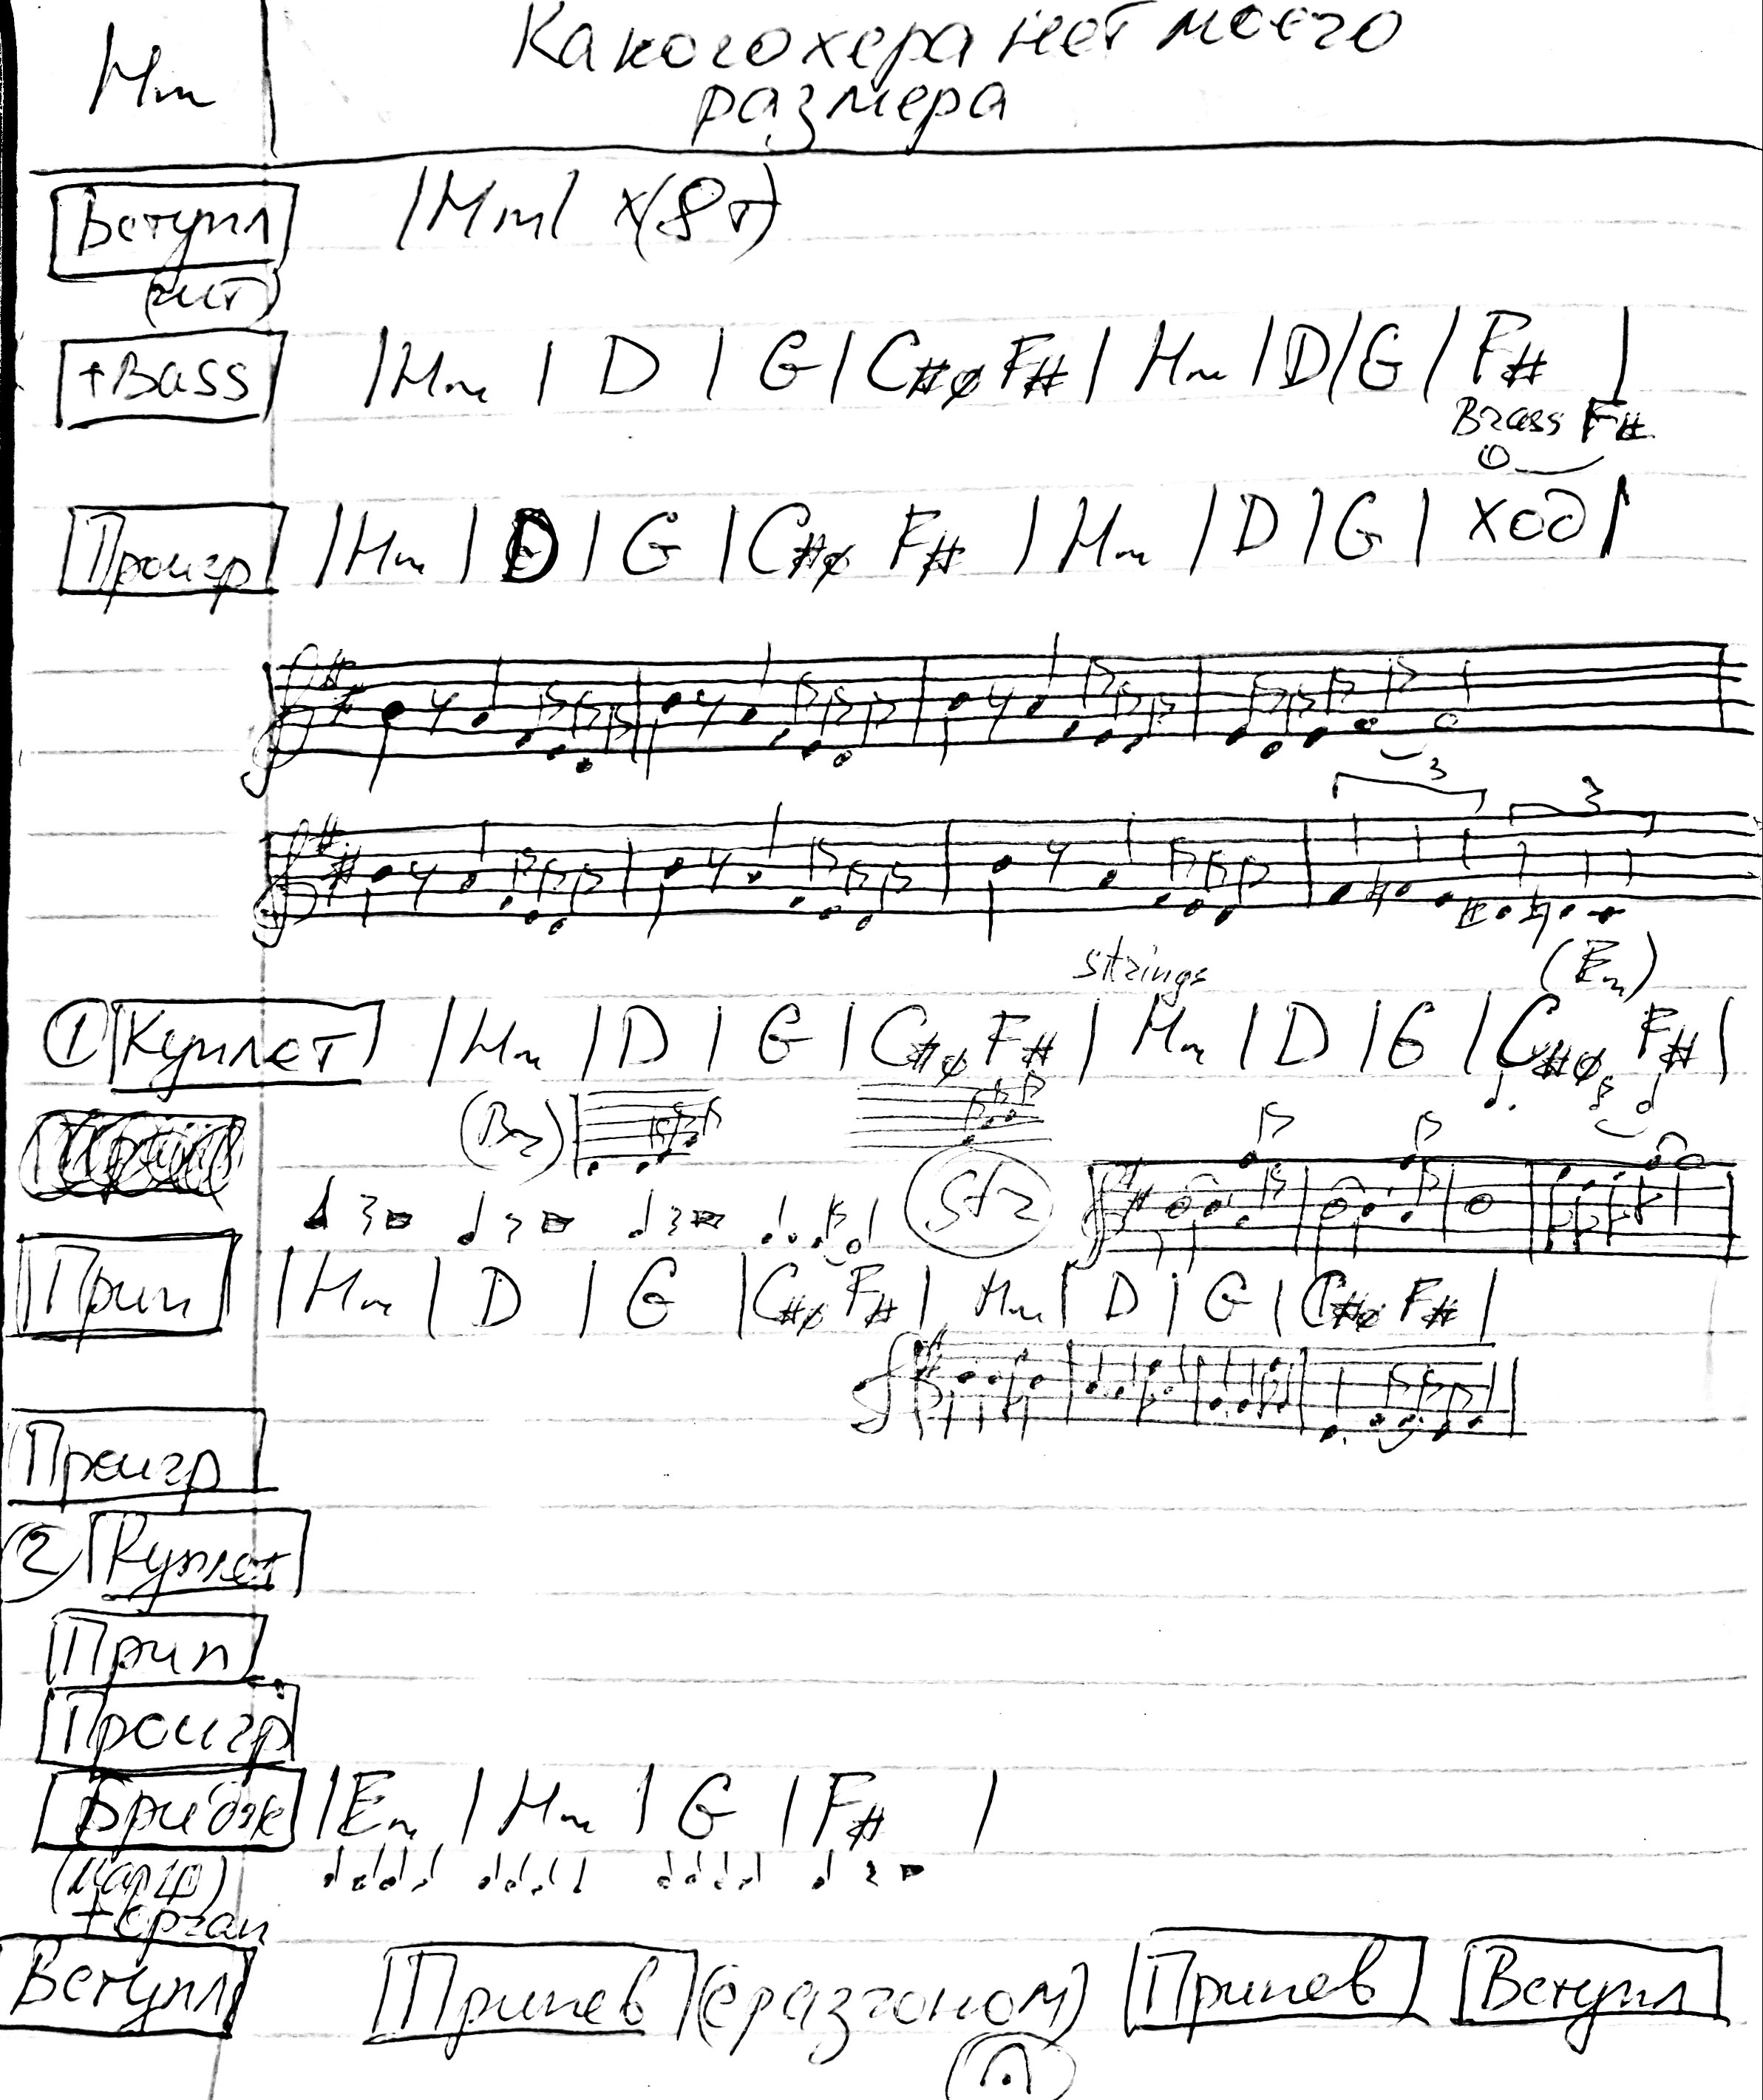 Hm
Какого хера нет моего
размера
Вступл |Hm| x(8т)
(гит)
+Bass |Hm | D | G | C#ø F# | Hm | D | G | F# |
Brass F#
Проигр |Hm | D | G | C#ø F# | Hm | D | G | ход |
3 3
strings (Em)
① Куплет |Hm | D | G | C#ø F# | Hm | D | G | C#ø F# |
(Br)
Str
Прип |Hm | D | G | C#ø F# | Hm | D | G | C#ø F# |
Проигр
② Куплет
Прип
Проигр
Бридж |Em | Hm | G | F# |
+орган
Вступл Припев (с разгоном) Припев Вступл